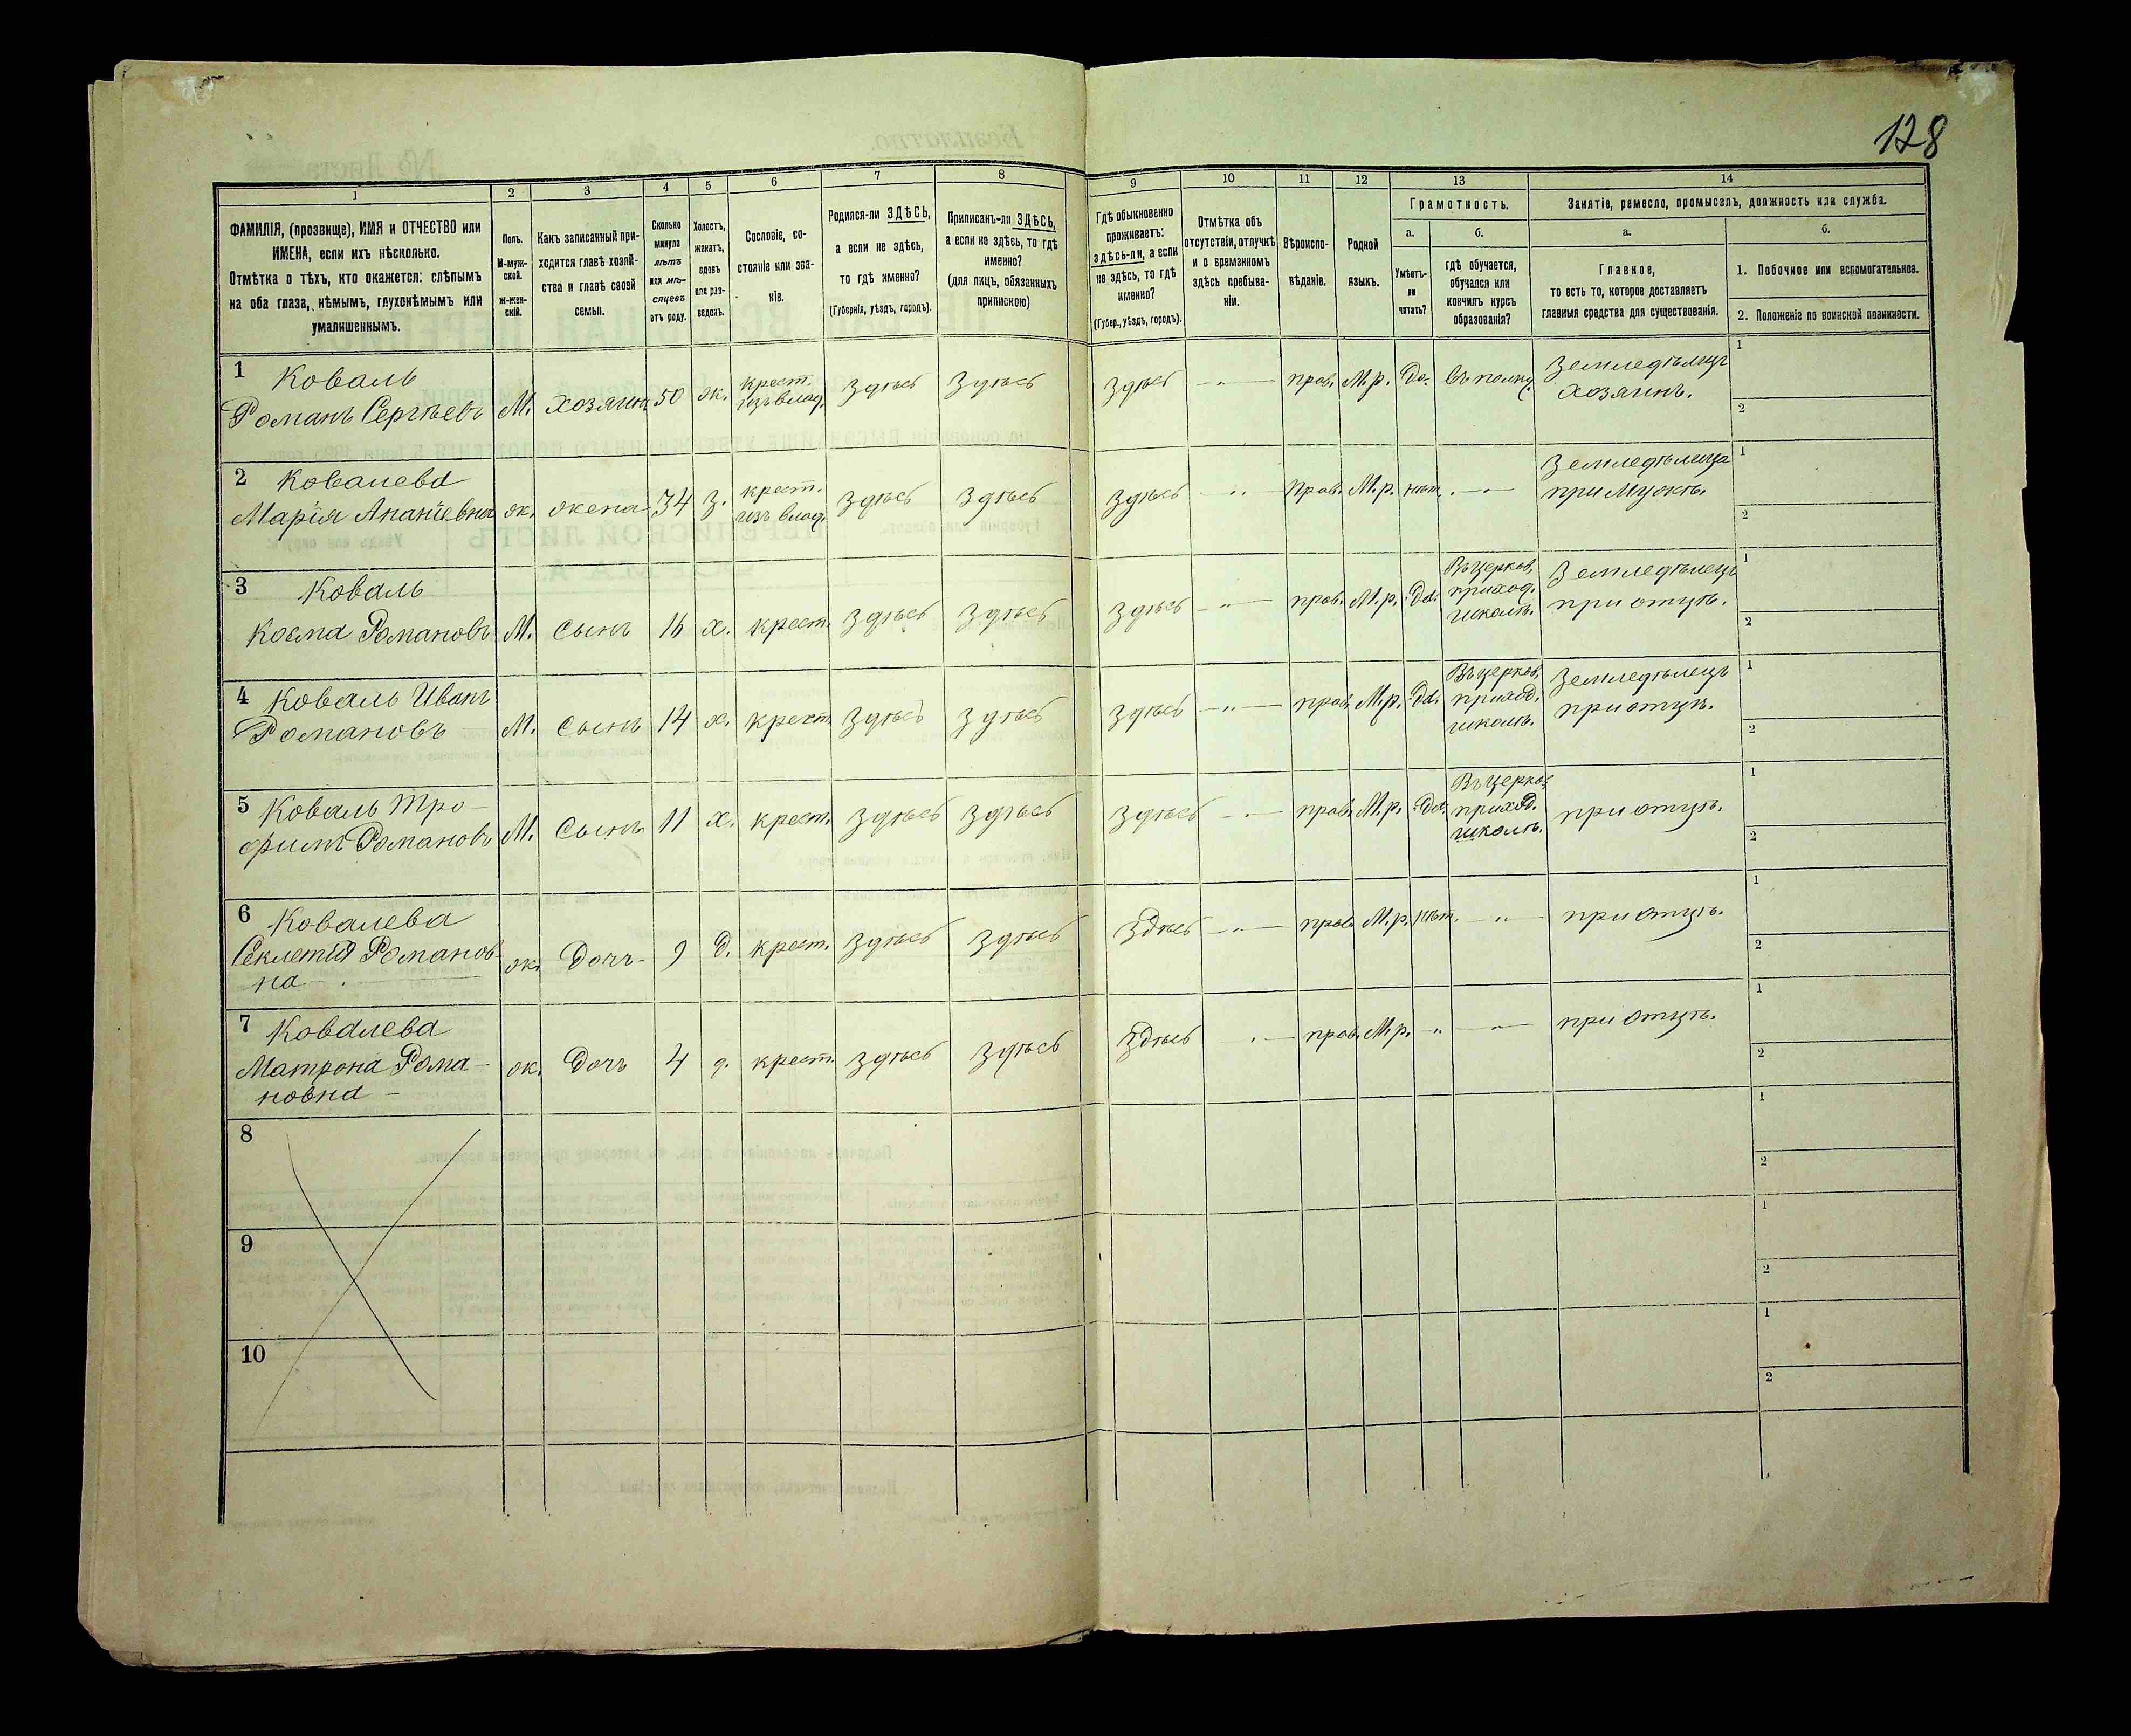 128
1
2
3
4
5
6
7
8
9
10
11
12
13
14
ФАМИЛІЯ, (прозвище), ИМЯ и ОТЧЕСТВО или
ИМЕНА, если ихъ нѣсколько.
Отмѣтка о тѣхъ, кто окажется: слѣпымъ
на оба глаза, нѣмымъ, глухонѣмымъ или
умалишеннымъ.
Полъ.
М-муж-
ской.
Ж-жен-
скій.
Какъ записанный при-
ходится главѣ хозяй-
ства и главѣ своей
семьи.
Сколько
минуло
лѣтъ
или мѣ-
сяцевъ
отъ роду.
Холостъ,
женатъ,
вдовъ
или раз-
веденъ.
Сословіе, со-
стояніе или зва-
ніе.
Родился-ли ЗДѢСЬ,
а если не здѣсь,
то гдѣ именно?
(Губернія, уѣздъ, городъ).
Приписанъ-ли ЗДѢСЬ,
а если не здѣсь, то гдѣ
именно?
(для лицъ, обязанныхъ
припискою)
Гдѣ обыкновенно
проживаетъ:
здѣсь-ли, а если
не здѣсь, то гдѣ
именно?
(Губер., уѣздъ, городъ).
Отмѣтка объ
отсутствіи, отлучкѣ
и о временномъ
здѣсь пребыва-
ніи.
Вѣроиспо-
вѣданіе.
Родной
языкъ.
Грамотность.
а.
Умѣетъ-
ли
читать?
б.
гдѣ обучается,
обучался или
кончилъ курсъ
образованія?
Занятіе, ремесло, промыселъ, должность или служба.
а.
Главное,
то есть то, которое доставляетъ
главныя средства для существованія.
б.
1. Побочное или вспомогательное.
2. Положеніе по воинской повинности.
1 Коваль
Романъ Сергѣевъ М. хозяинъ 50 ж. крест. изъ влад. здѣсь здѣсь здѣсь —„— прав. М.р. Да. въ полку. Земледѣлецъ
хозяинъ.
1
2
2 Ковалева
Марія Ананіевна ж. жена 34 з. крест. изъ влад. здѣсь здѣсь здѣсь —„— прав. М.р. нѣт. —„— Земледѣлица
при мужѣ.
1
2
3 Коваль
Косма Романовъ М. сынъ 16 х. крест. здѣсь здѣсь здѣсь —„— прав. М.р. Да. Въ церков. приход. школѣ. Земледѣлецъ
при отцѣ.
1
2
4 Коваль Иванъ
Романовъ М. сынъ 14 х. крест. здѣсь здѣсь здѣсь —„— прав. М.р. Да. Въ церков. приход. школѣ. Земледѣлецъ
при отцѣ.
1
2
5 Коваль Тро-
фимъ Романовъ М. сынъ 11 х. крест. здѣсь здѣсь здѣсь —„— прав. М.р. Да. Въ церков. приход. школѣ. при отцѣ.
1
2
6 Ковалева
Секлетія Романов-
на ж. Дочь 9 д. крест. здѣсь здѣсь Здѣсь —„— прав. М.р. нѣт. —„— при отцѣ.
1
2
7 Ковалева
Матрона Рома-
новна ж. Дочь 4 д. крест. здѣсь здѣсь Здѣсь —„— прав. М.р. „ —„— при отцѣ.
1
2
8
1
2
9
1
2
10
1
2